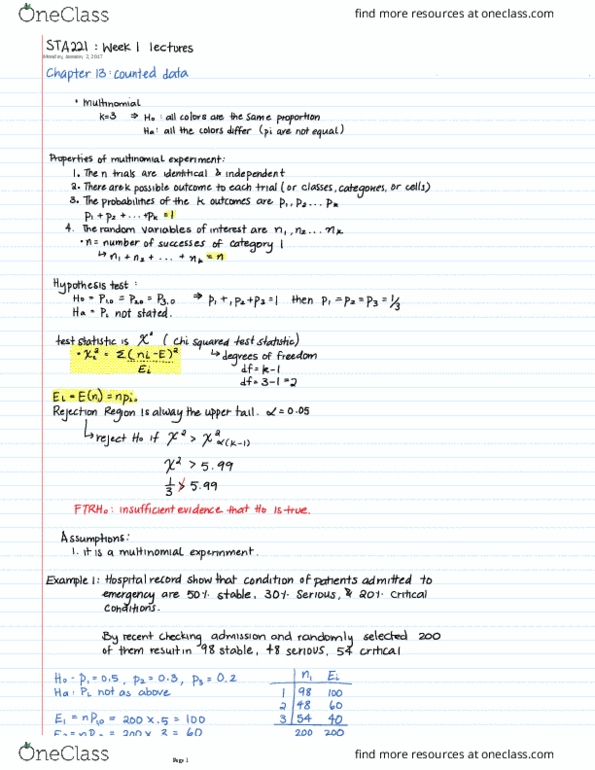 OneClass
find more resources at oneclass.com
STA221 : Week 1 lectures
Monday, January 2, 2017
Chapter 13: counted data
• multinomial
k=3 ⇒ Ho : all colors are the same proportion
Ha : all the colors differ (pi are not equal)
Properties of multinomial experiment:
1. The n trials are identical & independent
2. There are k possible outcome to each trial (or classes, categories, or cells)
3. The probabilities of the k outcomes are p₁, p₂ ... pk
p₁ + p₂ + ... + pk = 1
4. The random variables of interest are n₁, n₂ ... nk
• n = number of successes of category 1
↳ n₁ + n₂ + ... + nk = n
Hypothesis test :
Ho = P₁,₀ = P₂,₀ = P₃,₀ ⇒ p₁ +, p₂ + p₃ = 1 then p₁ = p₂ = p₃ = 1/3
Ha = Pi not stated.
test statistic is X² (Chi squared test statistic)
• Xi² = Σ(ni-E)² ↳ degrees of freedom
Ei df = k-1
df = 3-1 = 2
Ei = E(ni) = npi.
Rejection Region is alway the upper tail. α = 0.05
↳ reject Ho if X² > X²α(k-1)
X² > 5.99
1/3 > 5.99
FTRHo : insufficient evidence that Ho is true.
Assumptions:
1. it is a multinomial experinment.
Example 1: Hospital record show that condition of patients admitted to
emergency are 50% stable, 30% serious, & 20% critical
conditions.
By recent checking admission and randomly selected 200
of them result in 98 stable, 48 serious, 54 critical
Ho - p₁ = 0.5, p₂ = 0.3, p₃ = 0.2
Ha : Pi not as above
ni Ei
1 98 100
2 48 60
3 54 40
200 200
E₁ = nP₁₀ = 200 x .5 = 100
OneClass
Page 1
find more resources at oneclass.com